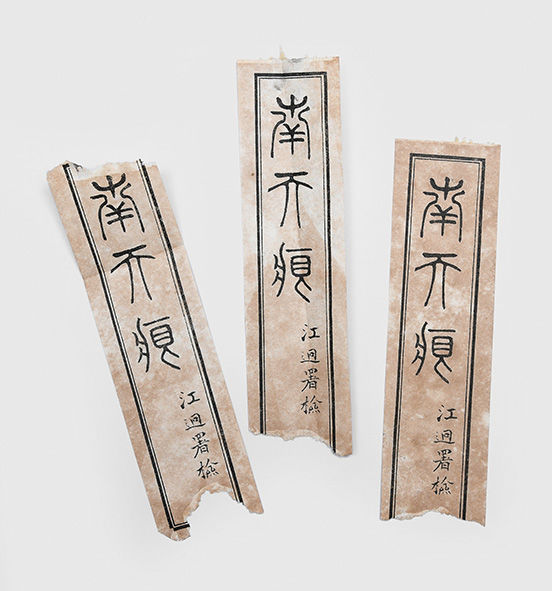 南天痕
江迥署檢
南天痕
江迥署檢
南天痕
江迥署檢